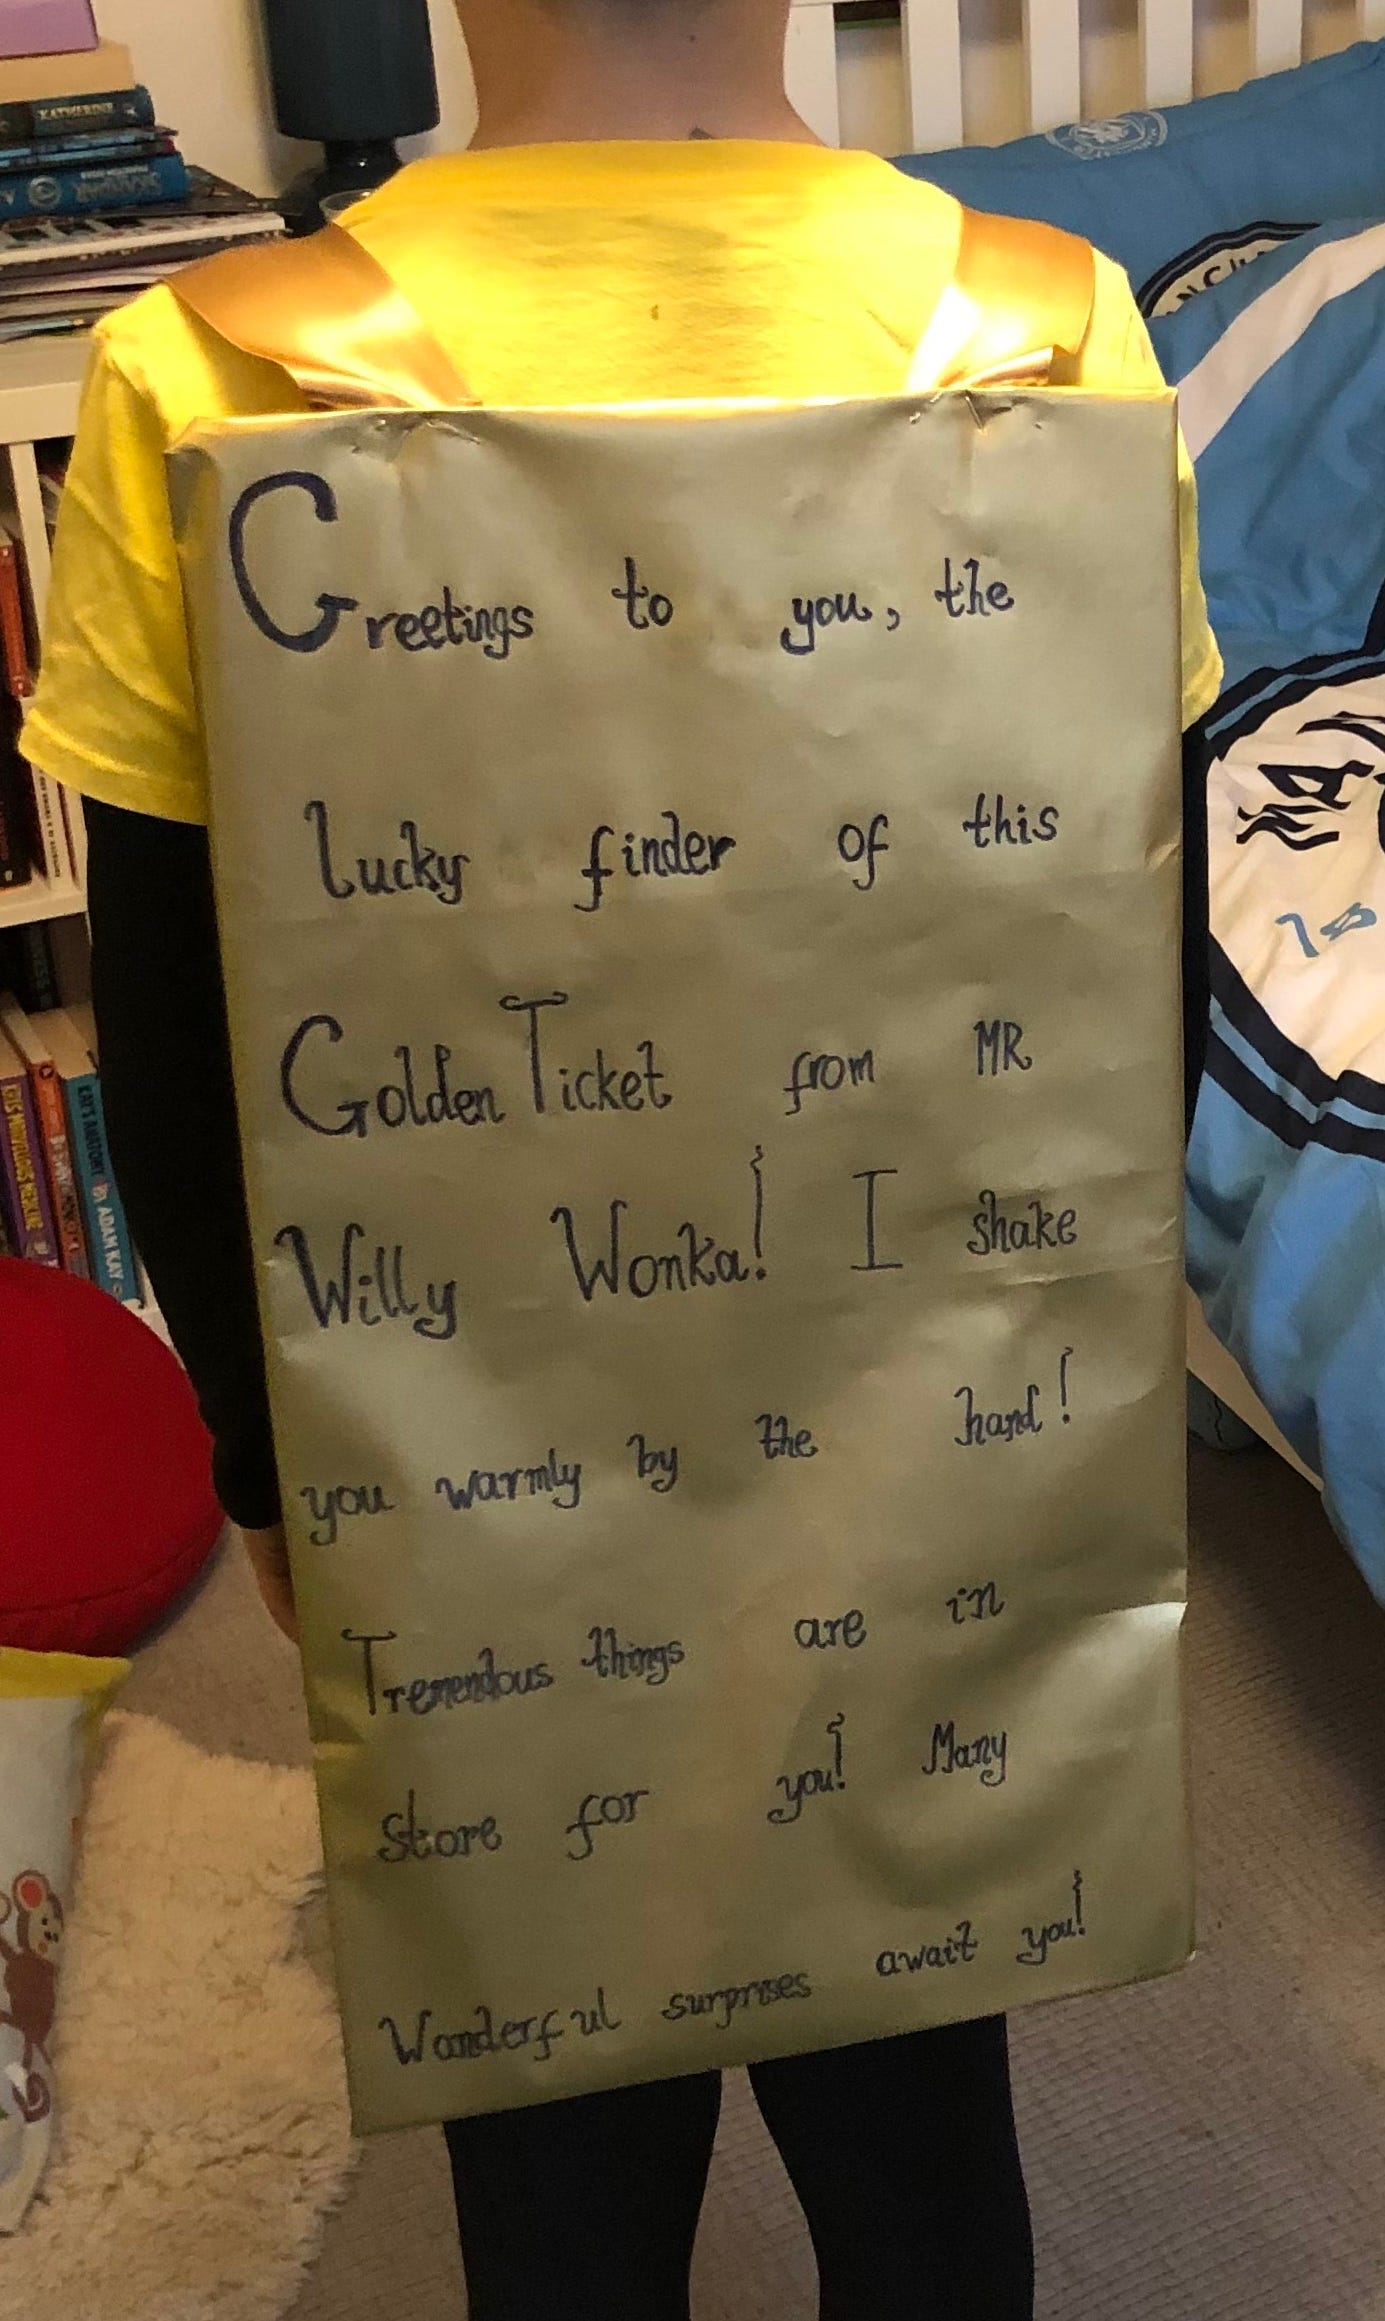 KATHERINE
Greetings to you, the
lucky finder of this
Golden Ticket from MR
Willy Wonka! I shake
you warmly by the hand!
Tremendous things are in
store for you! Many
Wonderful surprises await you!
KAY'S ANATOMY BY ADAM KAY